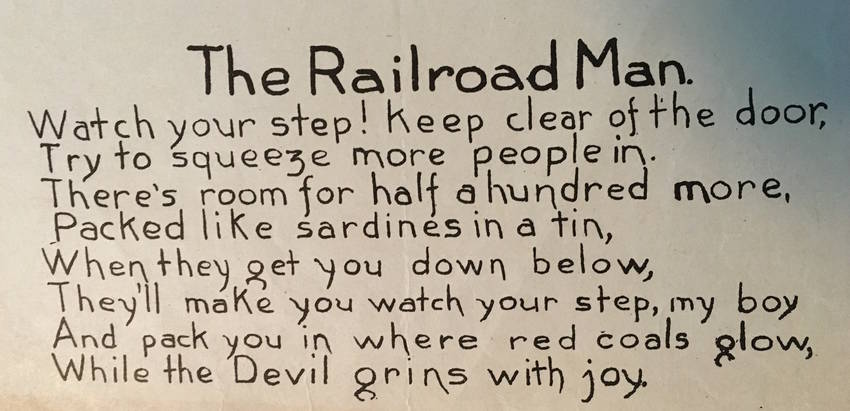 The Railroad Man.
Watch your step! Keep clear of the door,
Try to squeeze more people in.
There's room for half a hundred more,
Packed like sardines in a tin,
When they get you down below,
They'll make you watch your step, my boy
And pack you in where red coals glow,
While the Devil grins with joy.